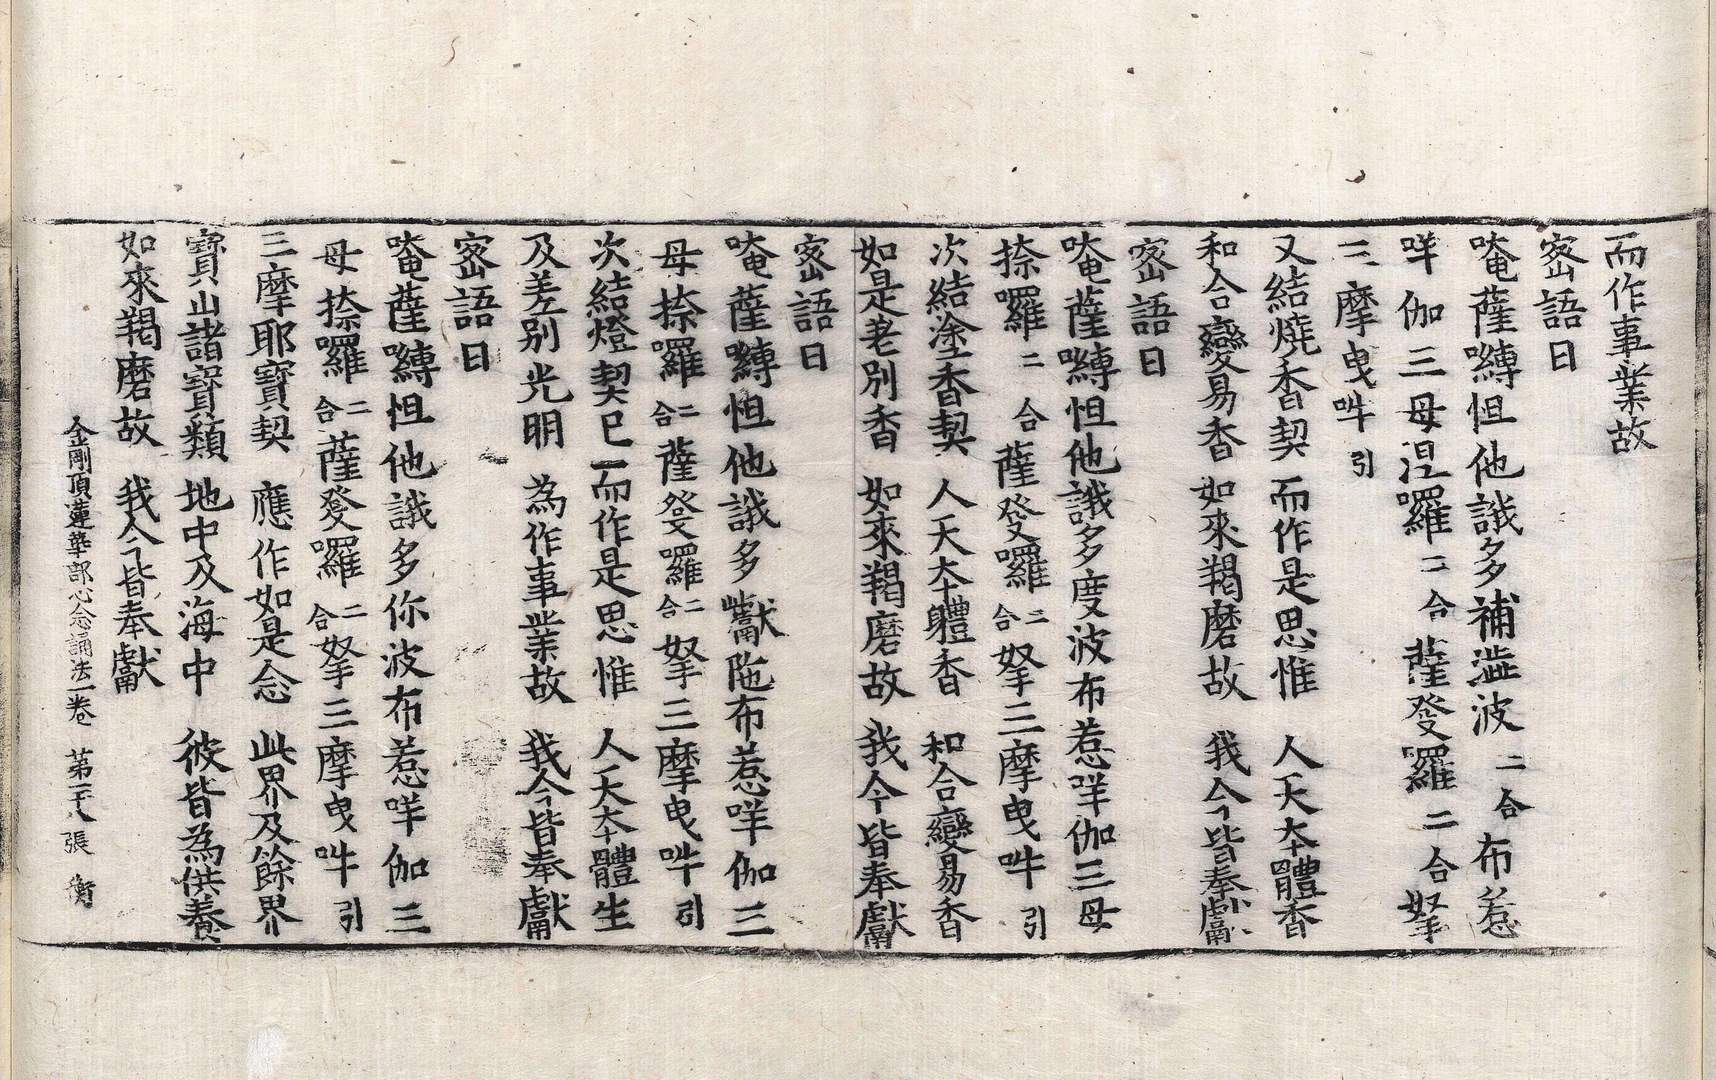 而作事業故
密語曰
唵薩嚩怛他誐多補澁波二合布惹
咩伽三母涅囉二合薩發羅二合拏
三摩曳吽引
又結燒香契 而作是思惟 人天本體香
和合變易香 如來羯磨故 我今皆奉獻
密語曰
唵薩嚩怛他誐多度波布惹咩伽三母
捺囉二合薩發囉二合拏三摩曳吽引
次結塗香契 人天本體香 和合變易香
如是老別香 如來羯磨故 我今皆奉獻
密語曰
唵薩嚩怛他誐多巘陁布惹咩伽三
母捺囉二合薩發囉二合拏三摩曳吽引
次結燈契已 而作是思惟 人天本體生
及差別光明 為作事業故 我今皆奉獻
密語曰
唵薩嚩怛他誐多你波布惹咩伽三
母捺囉二合薩發囉二合拏三摩曳吽引
三摩耶寶契 應作如是念 此界及餘界
寶山諸寶類 地中及海中 彼皆為供養
如來羯磨故 我今皆奉獻
金剛頂蓮華部心念誦法一卷 第二十八張 衡